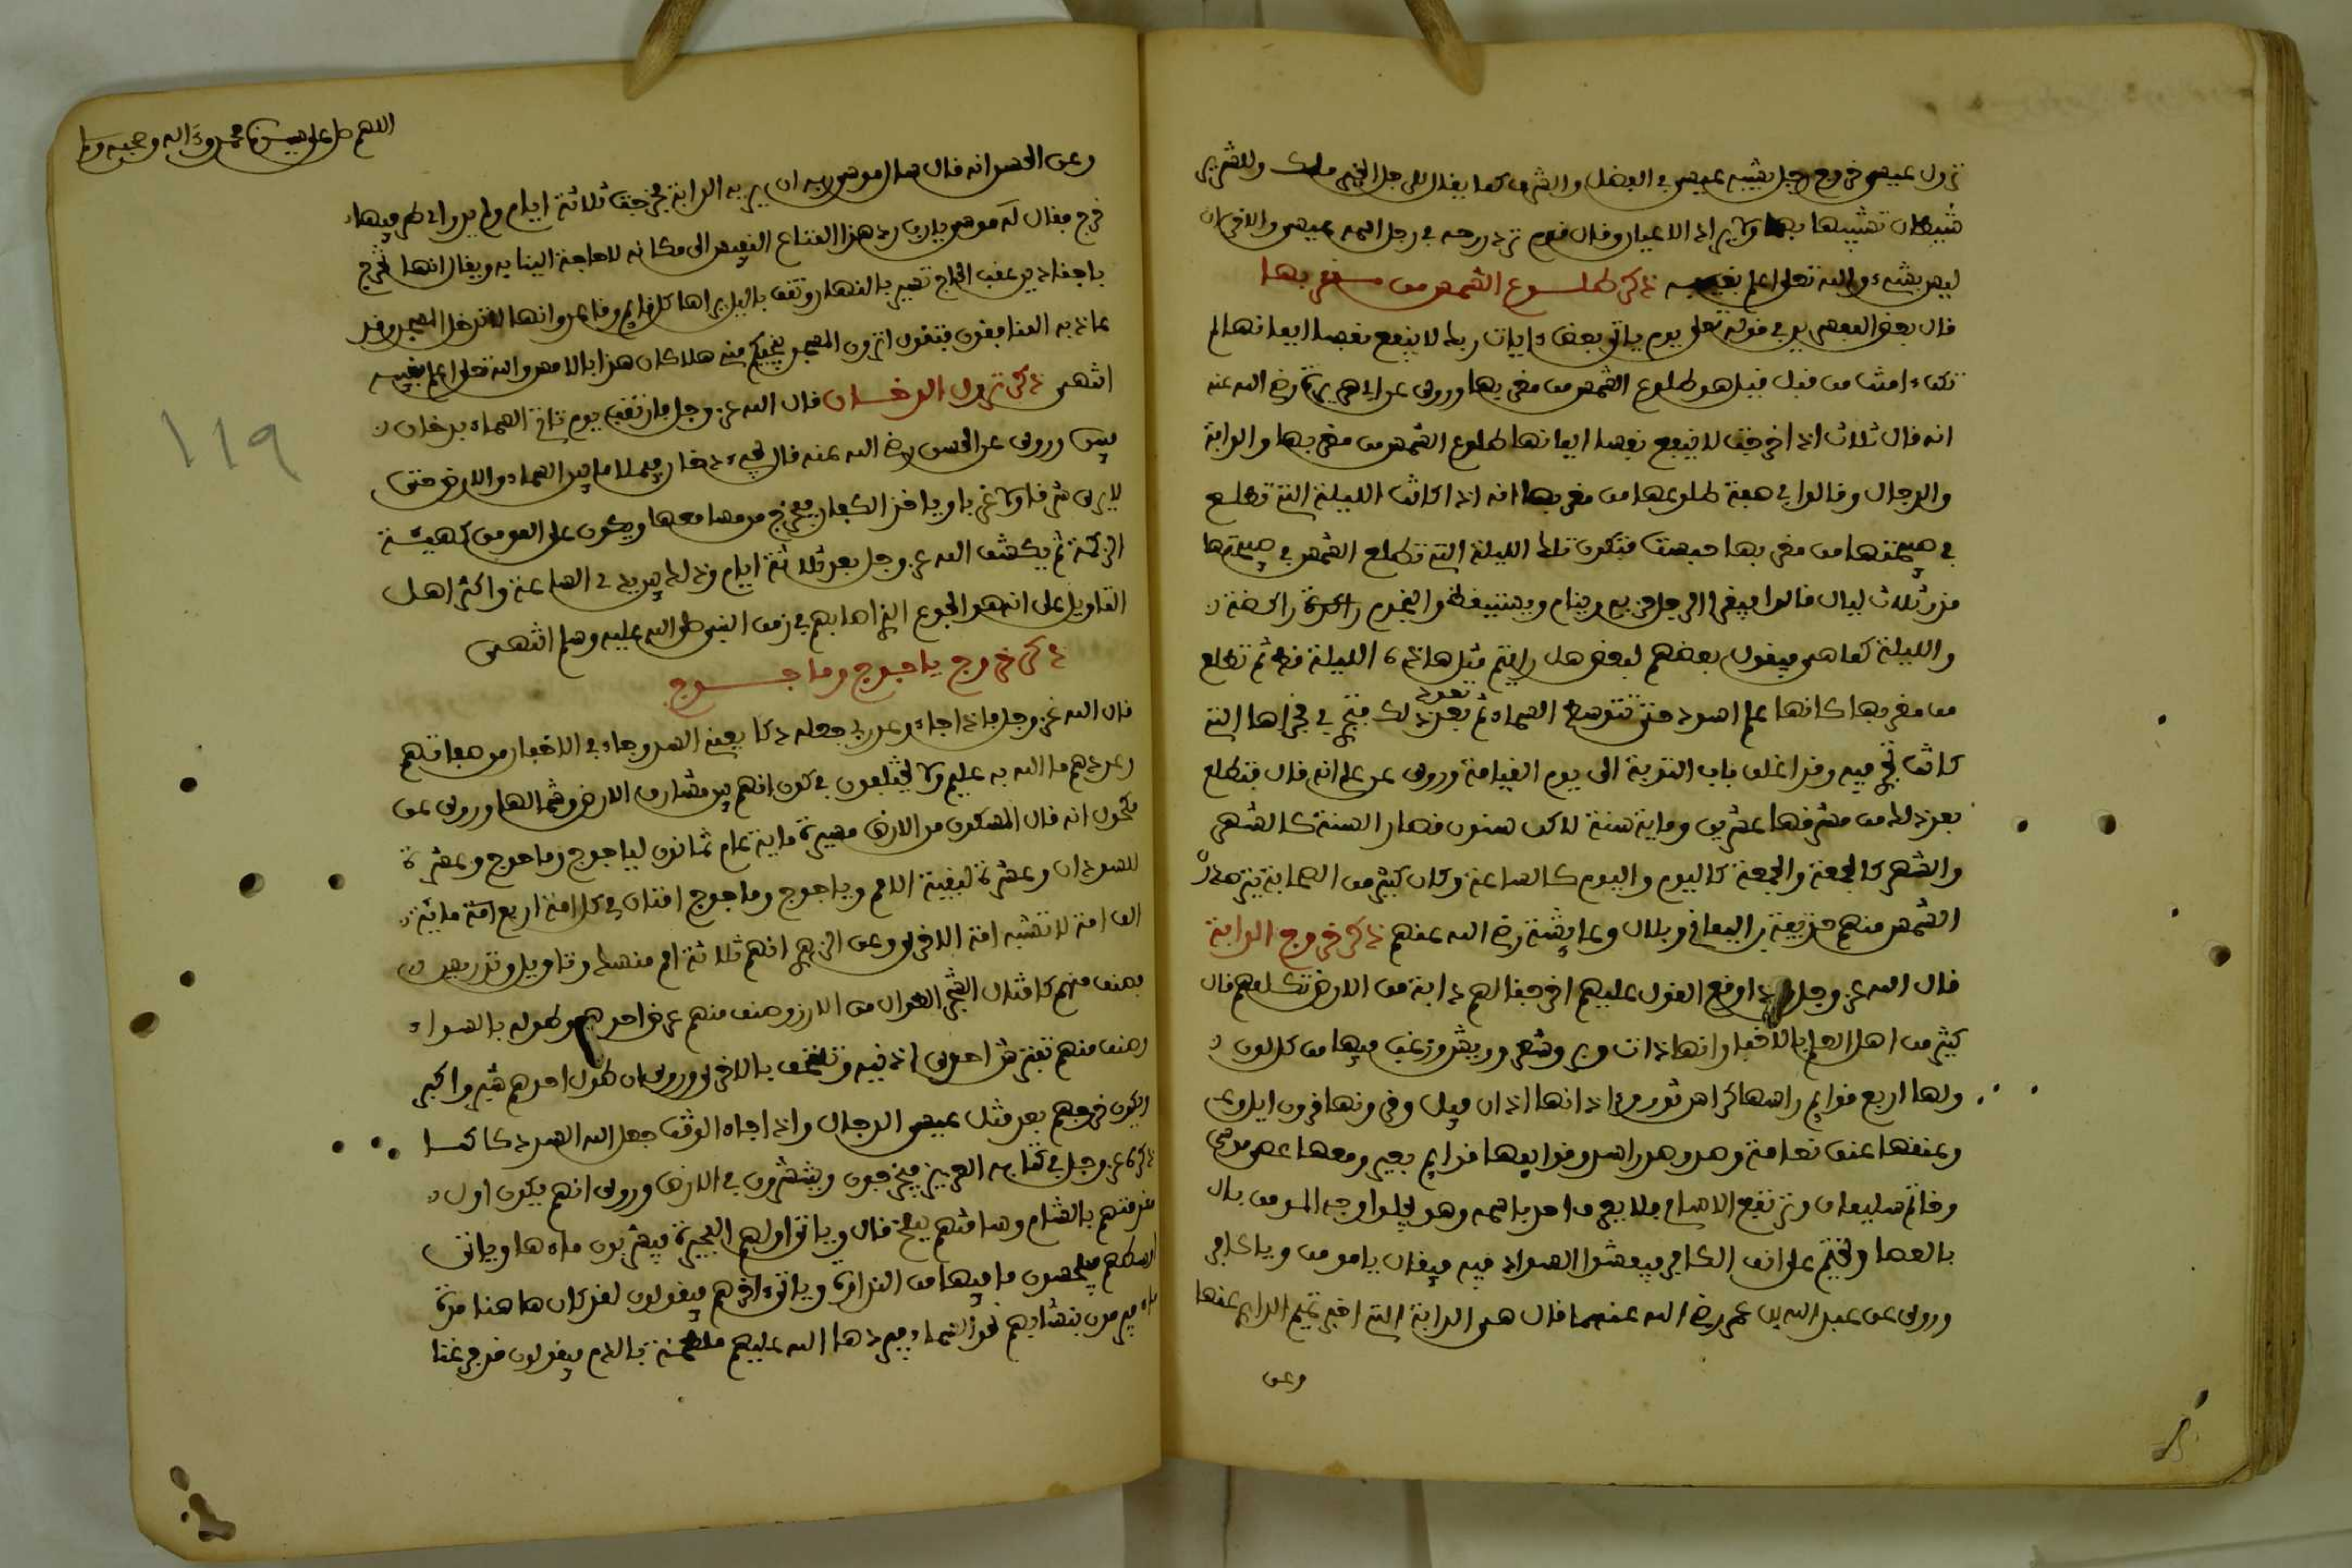 نزول عيسى خروج رجل يشبه عيسى في الفضل والشرف كما يقال للرجل الخير ملك وللشرير
شيطان تشبيها بهما ولا يراد الاعيان وقال قوم ترد روحه في رجل اسمه عيسى والاخران
ليس بشيء والله تعلى اعلم بغيبه ذكر طلوع الشمس من مغربها
قال بعض المفسرين في قوله تعلى يوم ياتي بعض ءايات ربك لا ينفع نفسا ايمانها لم
تكن ءامنت من قبل قيل هو طلوع الشمس من مغربها وروي عن ابي هريرة رضي الله عنه
انه قال ثلاث اذا خرجت لا ينفع نفسا ايمانها طلوع الشمس من مغربها والدابة
والدجال وقالوا في صفة طلوعها من مغربها انه اذا كانت الليلة التي تطلع
في صبيحتها من مغربها حبست فتكون تلك الليلة التي تطلع الشمس في صبيحتها
قدر ثلاث ليال قالوا فيقرأ الرجل حزبه وينام ويستيقظ والنجوم راكدة
والليلة كما هي فيقول بعضهم لبعض هل رايتم مثل هاذه الليلة قط ثم تطلع
من مغربها كانها علم اسود حتى تتوسط السماء ثم تعود بعد ذلك فتجري في مجراها التي
كانت تجري فيه وقد اغلق باب التوبة الى يوم القيامة وروي عن علي انه قال فتطلع
بعد ذلك من مشرقها عشرين وماية سنة لاكن سنون قصار السنة كالشهر
والشهر كالجمعة والجمعة كاليوم واليوم كالساعة وكان كثير من الصحابة يترصدون
الشمس منهم حذيفة بن اليمان وبلال وعايشة رضي الله عنهم ذكر خروج الدابة
قال الله عز وجل واذا وقع القول عليهم اخرجنا لهم دابة من الارض تكلمهم قال
كثير من اهل العلم بالاخبار انها ذات وبر وشعر وريش وزغب فيها من كل لون
ولها اربع قوايم راسها كراس ثور واذانها اذان فيل وقرونها قرون ايل
وعنقها عنق نعامة وصدرها صدر اسد وقوايمها قوايم بعير ومعها عصى موسى
وخاتم سليمان وترتفع الاسماء فلا يعرف احد باسمه وهو تجلوا وجه المومن بال
بالعصا وتختم على انف الكافر فيفشوا السواد فيه فيقال يا مومن ويا كافر
وروي عن عبد الله بن عمر رضي الله عنهما قال هي الدابة التي اخبر تميم الداري عنها
وعن
اللهم صل على سيدنا محمد وءاله وصحبه وسلم
وعن الحسن انه قال سال موسى ربه ان يريه الدابة فخرجت ثلاثة ايام ولم يدر اي طرفيها
خرج فقال له موسى يا رب رد هذا المتاع النفيس الى مكانه لا حاجة الينا به ويقال انها تخرج
باجناد بين عقب الحاج تسير بالنهار وتقف بالليل يراها كل قايم وقاعد وانها لا تدخل المسجد وقد
عاذ به المنافقون فتقول اترون المسجد ينجيكم مني هلا كان هذا بالامس والله تعلى اعلم بغيبه
انتهى ذكر نزول الدخان قال الله عز وجل فارتقب يوم تاتي السماء بدخان
مبين وروي عن الحسن رضي الله عنه قال يجيء دخان فيملأ ما بين السماء والارض حتى
لا يدري شرقا ولا غربا وياخذ الكفار فيخرج من مسامعها ويكون على المومن كهيئة
الزكمة ثم يكشف الله عز وجل بعد ثلاثة ايام وذلك بين يدي الساعة واكثر اهل
التاويل على انه هو الجوع الذي اصابهم في زمن النبي صلى الله عليه وسلم انتهى
ذكر خروج ياجوج وماجوج
قال الله عز وجل فاذا جاء وعد ربي جعله دكا يعني السد وجاء في الاخبار من صفاتهم
وعددهم ما الله به عليم ولا يختلفون في كون انهم بين مشارق الارض وشمالها وروي عن
مكحول انه قال المسكون من الارض مسيرة ماية عام ثمانون لياجوج وماجوج وعشرة
للسودان وعشرة لبقية الامم وياجوج وماجوج امتان في كل امة اربع مائة
الف امة لا تشبه امة الاخرى وعن الزهري انهم ثلاثة امم منسك وتاويل وتدريس
فصنف منهم كامثال الشجر الطوال من الارز وصنف منهم عرض احدهم وطوله بالسواء
وصنف منهم تفترش احدى اذنيه وتلتحف بالاخرى وروي ان طول احدهم شبر واكبر
ويكون خروجهم بعد قتل عيسى الدجال واذا جاء الوقت جعل الله السد دكا كما
ذكره عز وجل في كتابه العزيز فيخرجون وينتشرون في الارض وروي انهم يكون اول
مقدمتهم بالشام وساقتهم ببلخ قال وياتي اولهم البحيرة فيشربون ماءها وياتي
اوسطهم فيلحسون ما فيها من النداوة وياتي ءاخرهم فيقولون لقد كان هاهنا مرة
ماء فيرمون بنشابهم نحو السماء فيردها الله عليهم ملطخة بالدم فيقولون قد فرغنا
١١٩